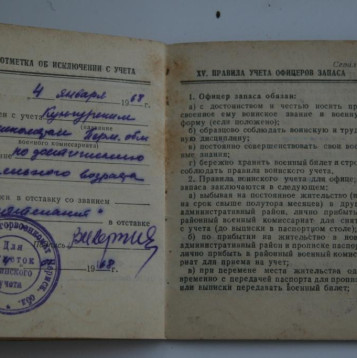 ОТМЕТКА ОБ ИСКЛЮЧЕНИИ С УЧЕТА
4 января 1968 г.
Кунгурским
Перм. обл
(наименование
военного комиссариата)
по достижении
возраста
в отставку со званием
в отставке
1968 г.
Для
учета
XV. ПРАВИЛА УЧЕТА ОФИЦЕРОВ ЗАПАСА
1. Офицер запаса обязан:
а) с достоинством и честью носить при
своенное ему воинское звание и военну
форму (если положено);
б) образцово соблюдать воинскую и труд
ную дисциплину;
в) постоянно совершенствовать свои во
ные знания;
г) бережно хранить военный билет и стр
соблюдать правила воинского учета.
2. Правила воинского учета для офице
запаса заключаются в следующем:
а) выбывая на постоянное жительство (и
на срок свыше полутора месяцев) в друго
административный район, лично прибыть
районный военный комиссариат для снят
с учета (до выписки в паспортном столе);
б) по прибытии на жительство в нов
административный район и прописке паспо
лично прибыть в районный военный комис
риат для приема на учет;
в) при перемене места жительства од
временно с передачей паспорта для пропис
или выписки передавать военный билет;